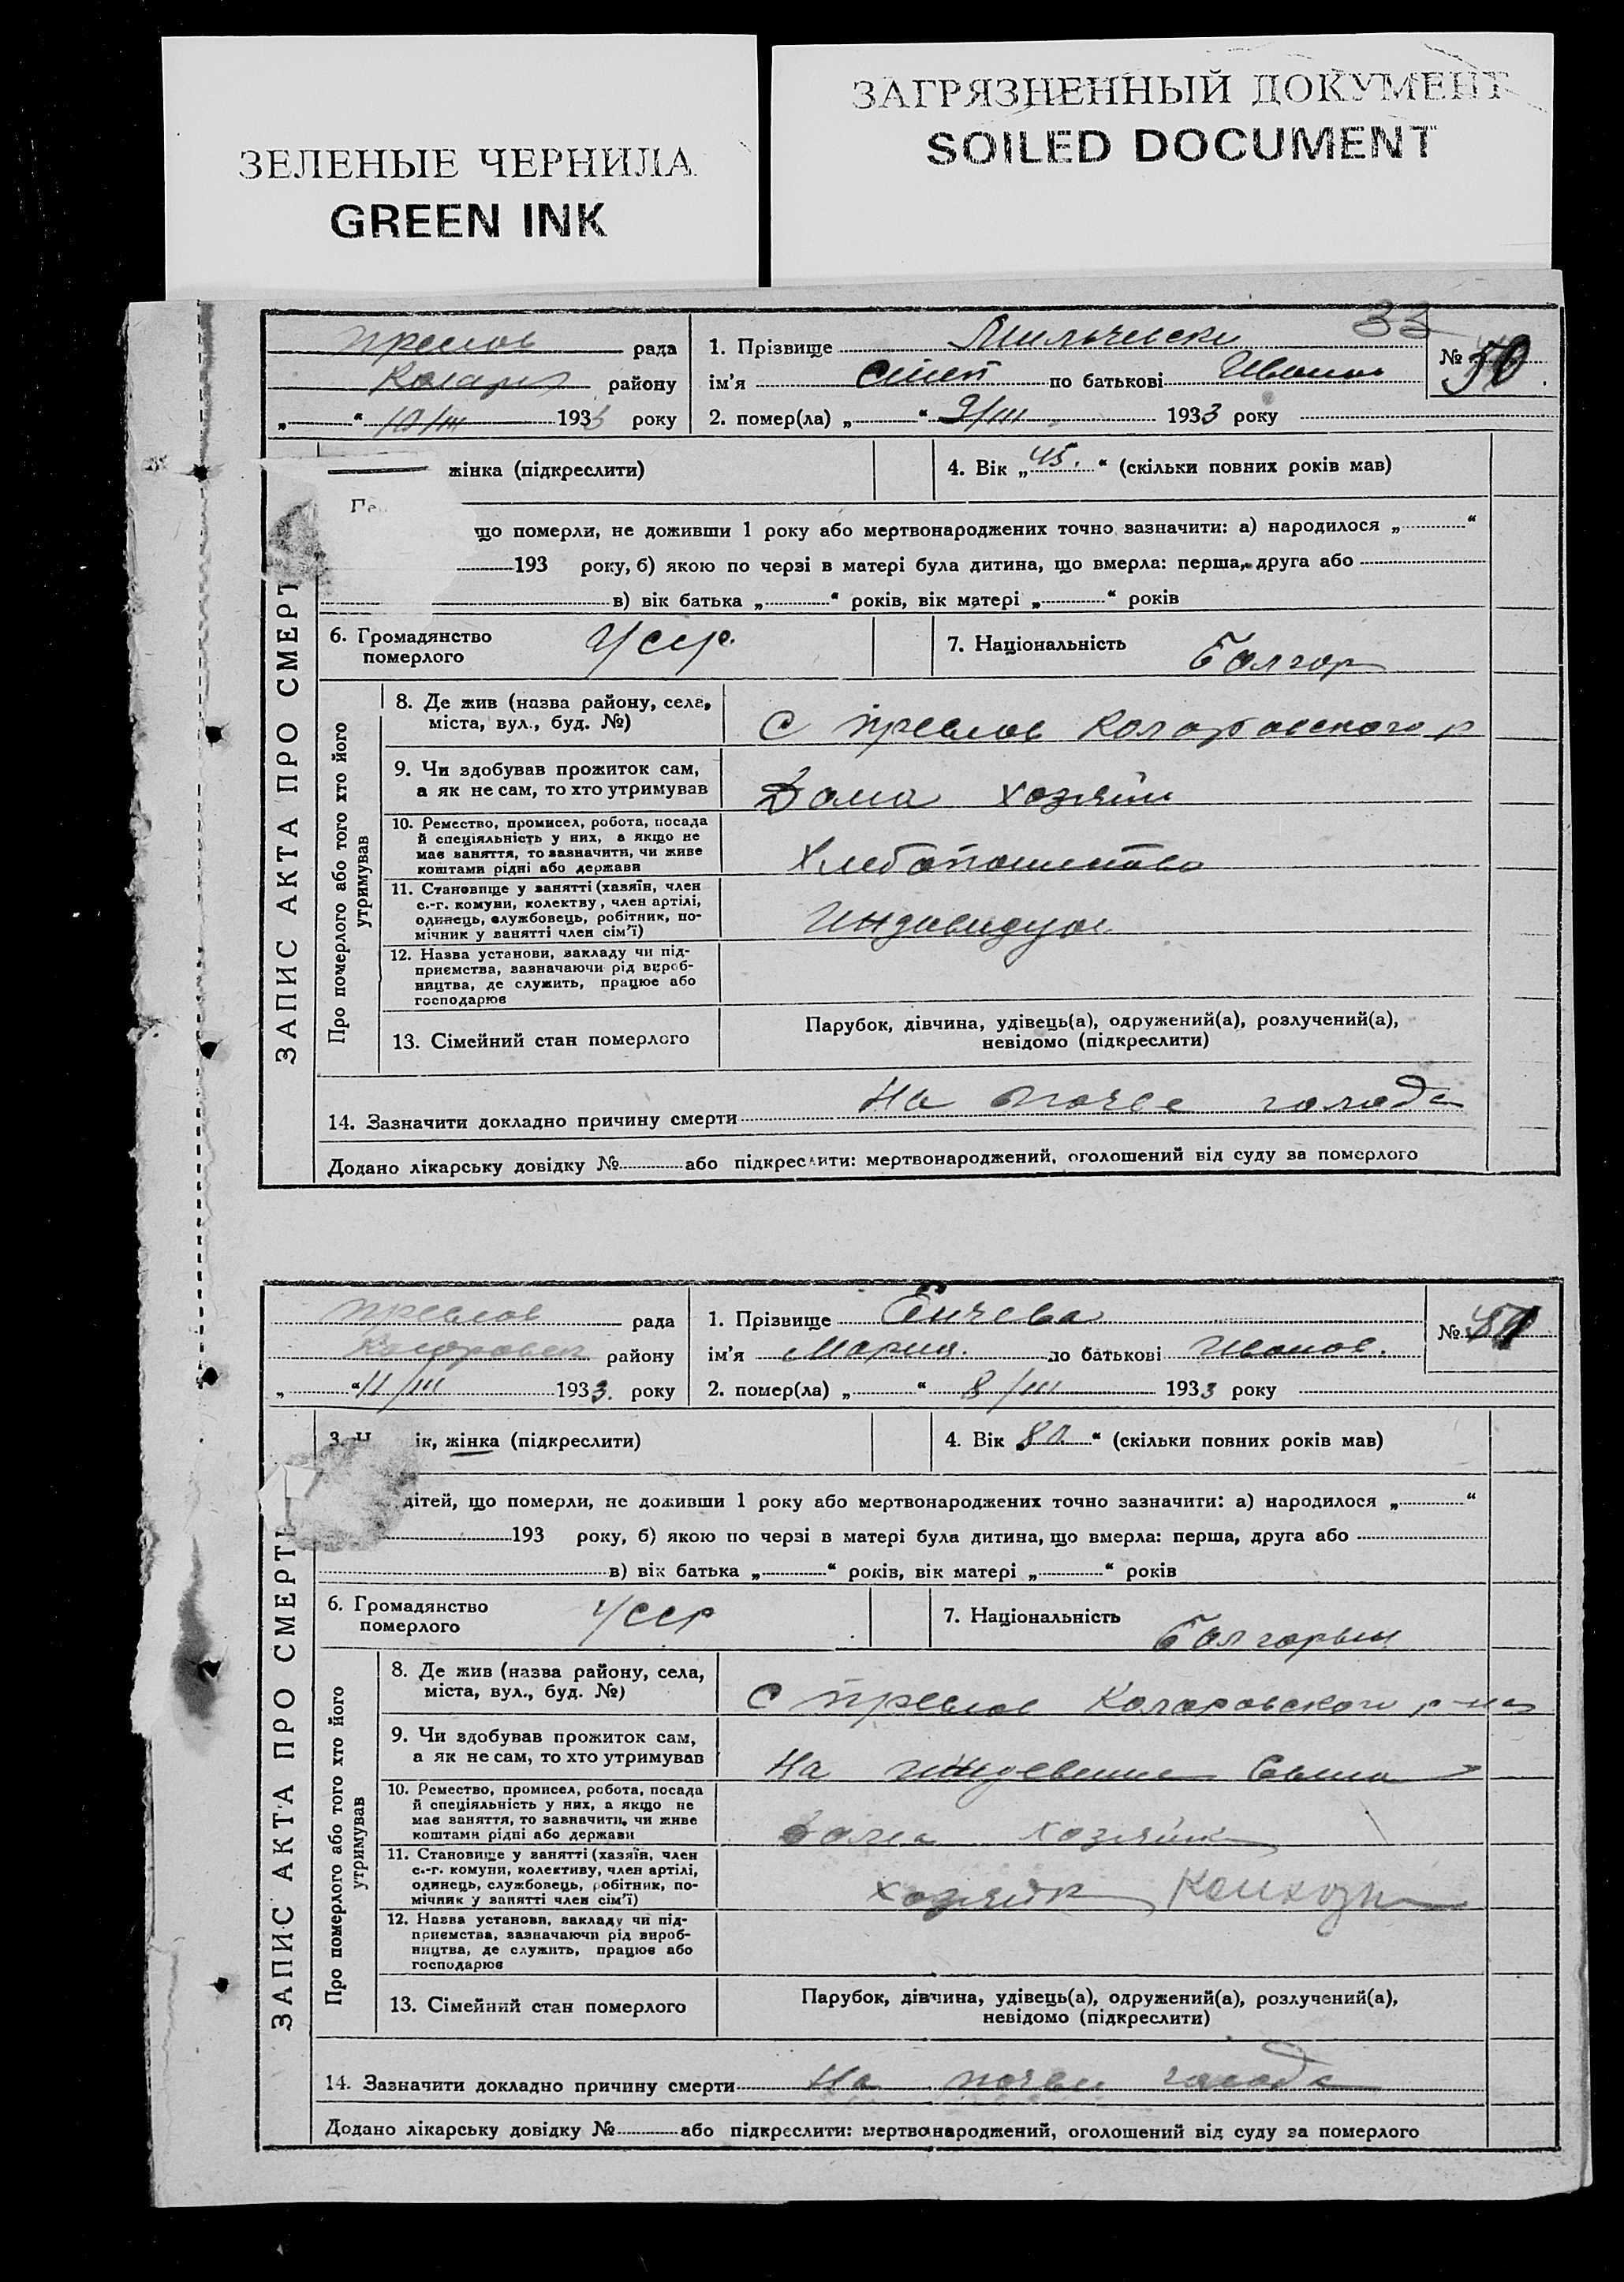 ЗЕЛЕНЫЕ ЧЕРНИЛА
GREEN INK
ЗАГРЯЗНЕННЫЙ ДОКУМЕНТ
SOILED DOCUMENT
33
Преслов рада
району
„ “ 10/III 1933 року
1. Прізвище Мильчевски
ім’я по батькові Иванов
2. помер(ла) „ “ 9/III 1933 року
№ 50
жінка (підкреслити)
4. Вік „45.“ (скільки повних років мав)
що померли, не доживши 1 року або мертвонароджених точно зазначити: а) народилося „ “
193 року, б) якою по черзі в матері була дитина, що вмерла: перша, друга або
в) вік батька „ “ років, вік матері „ “ років
6. Громадянство померлого УССР.
7. Національність Болгар
ЗАПИС АКТА ПРО СМЕРТ
Про померлого або того хто його утримував
8. Де жив (назва району, села,
міста, вул., буд. №)
С Преслов Коларовского р
9. Чи здобував прожиток сам,
а як не сам, то хто утримував
Дома хозяин
10. Ремество, промисел, робота, посада
й спеціяльність у них, а якщо не
має заняття, то зазначити, чи живе
коштами рідні або держави
Хлебопашество
11. Становище у занятті (хазяїн, член
с.-г. комуни, колектву, член артілі,
одинець, службовець, робітник, по-
мічник у занятті член сім’ї)
Индивидуал
12. Назва установи, закладу чи під-
приємства, зазначаючи рід вироб-
ництва, де служить, працює або
господарює
13. Сімейний стан померлого
Парубок, дівчина, удівець(а), одружений(а), розлучений(а),
невідомо (підкреслити)
14. Зазначити докладно причину смерти На почве голода
Додано лікарську довідку № або підкреслити: мертвонароджений, оголошений від суду за померлого
Преслов рада
Коларовск району
„ “ 11/III 1933. року
1. Прізвище Енчева
ім’я Мария. по батькові Иванов.
2. помер(ла) „ “ 8/III 1933 року
№ 51
3. Ч ік, жінка (підкреслити)
4. Вік 80 “ (скільки повних років мав)
дітей, що померли, не доживши 1 року або мертвонароджених точно зазначити: а) народилося „ “
193 року, б) якою по черзі в матері була дитина, що вмерла: перша, друга або
в) вік батька „ “ років, вік матері „ “ років
6. Громадянство померлого УССР
7. Національність
ЗАПИС АКТА ПРО СМЕРТЬ
Про померлого або того хто його утримував
8. Де жив (назва району, села,
міста, вул., буд. №)
С Преслов Коларовского р-на
9. Чи здобував прожиток сам,
а як не сам, то хто утримував
На иждевении Сына
10. Ремество, промисел, робота, посада
й спеціяльність у них, а якщо не
має заняття, то зазначити, чи живе
коштами рідні або держави
Дома хозяйка
11. Становище у занятті (хазяїн, член
с.-г. комуни, колективу, член артілі,
одинець, службовець, робітник, по-
мічник у занятті член сім’ї)
12. Назва установи, закладу чи під-
приємства, зазначаючи рід вироб-
ництва, де служить, працює або
господарює
13. Сімейний стан померлого
Парубок, дівчина, удівець(а), одружений(а), розлучений(а),
невідомо (підкреслити)
14. Зазначити докладно причину смерти На почве голода
Додано лікарську довідку № або підкреслити: мертвонароджений, оголошений від суду за померлого